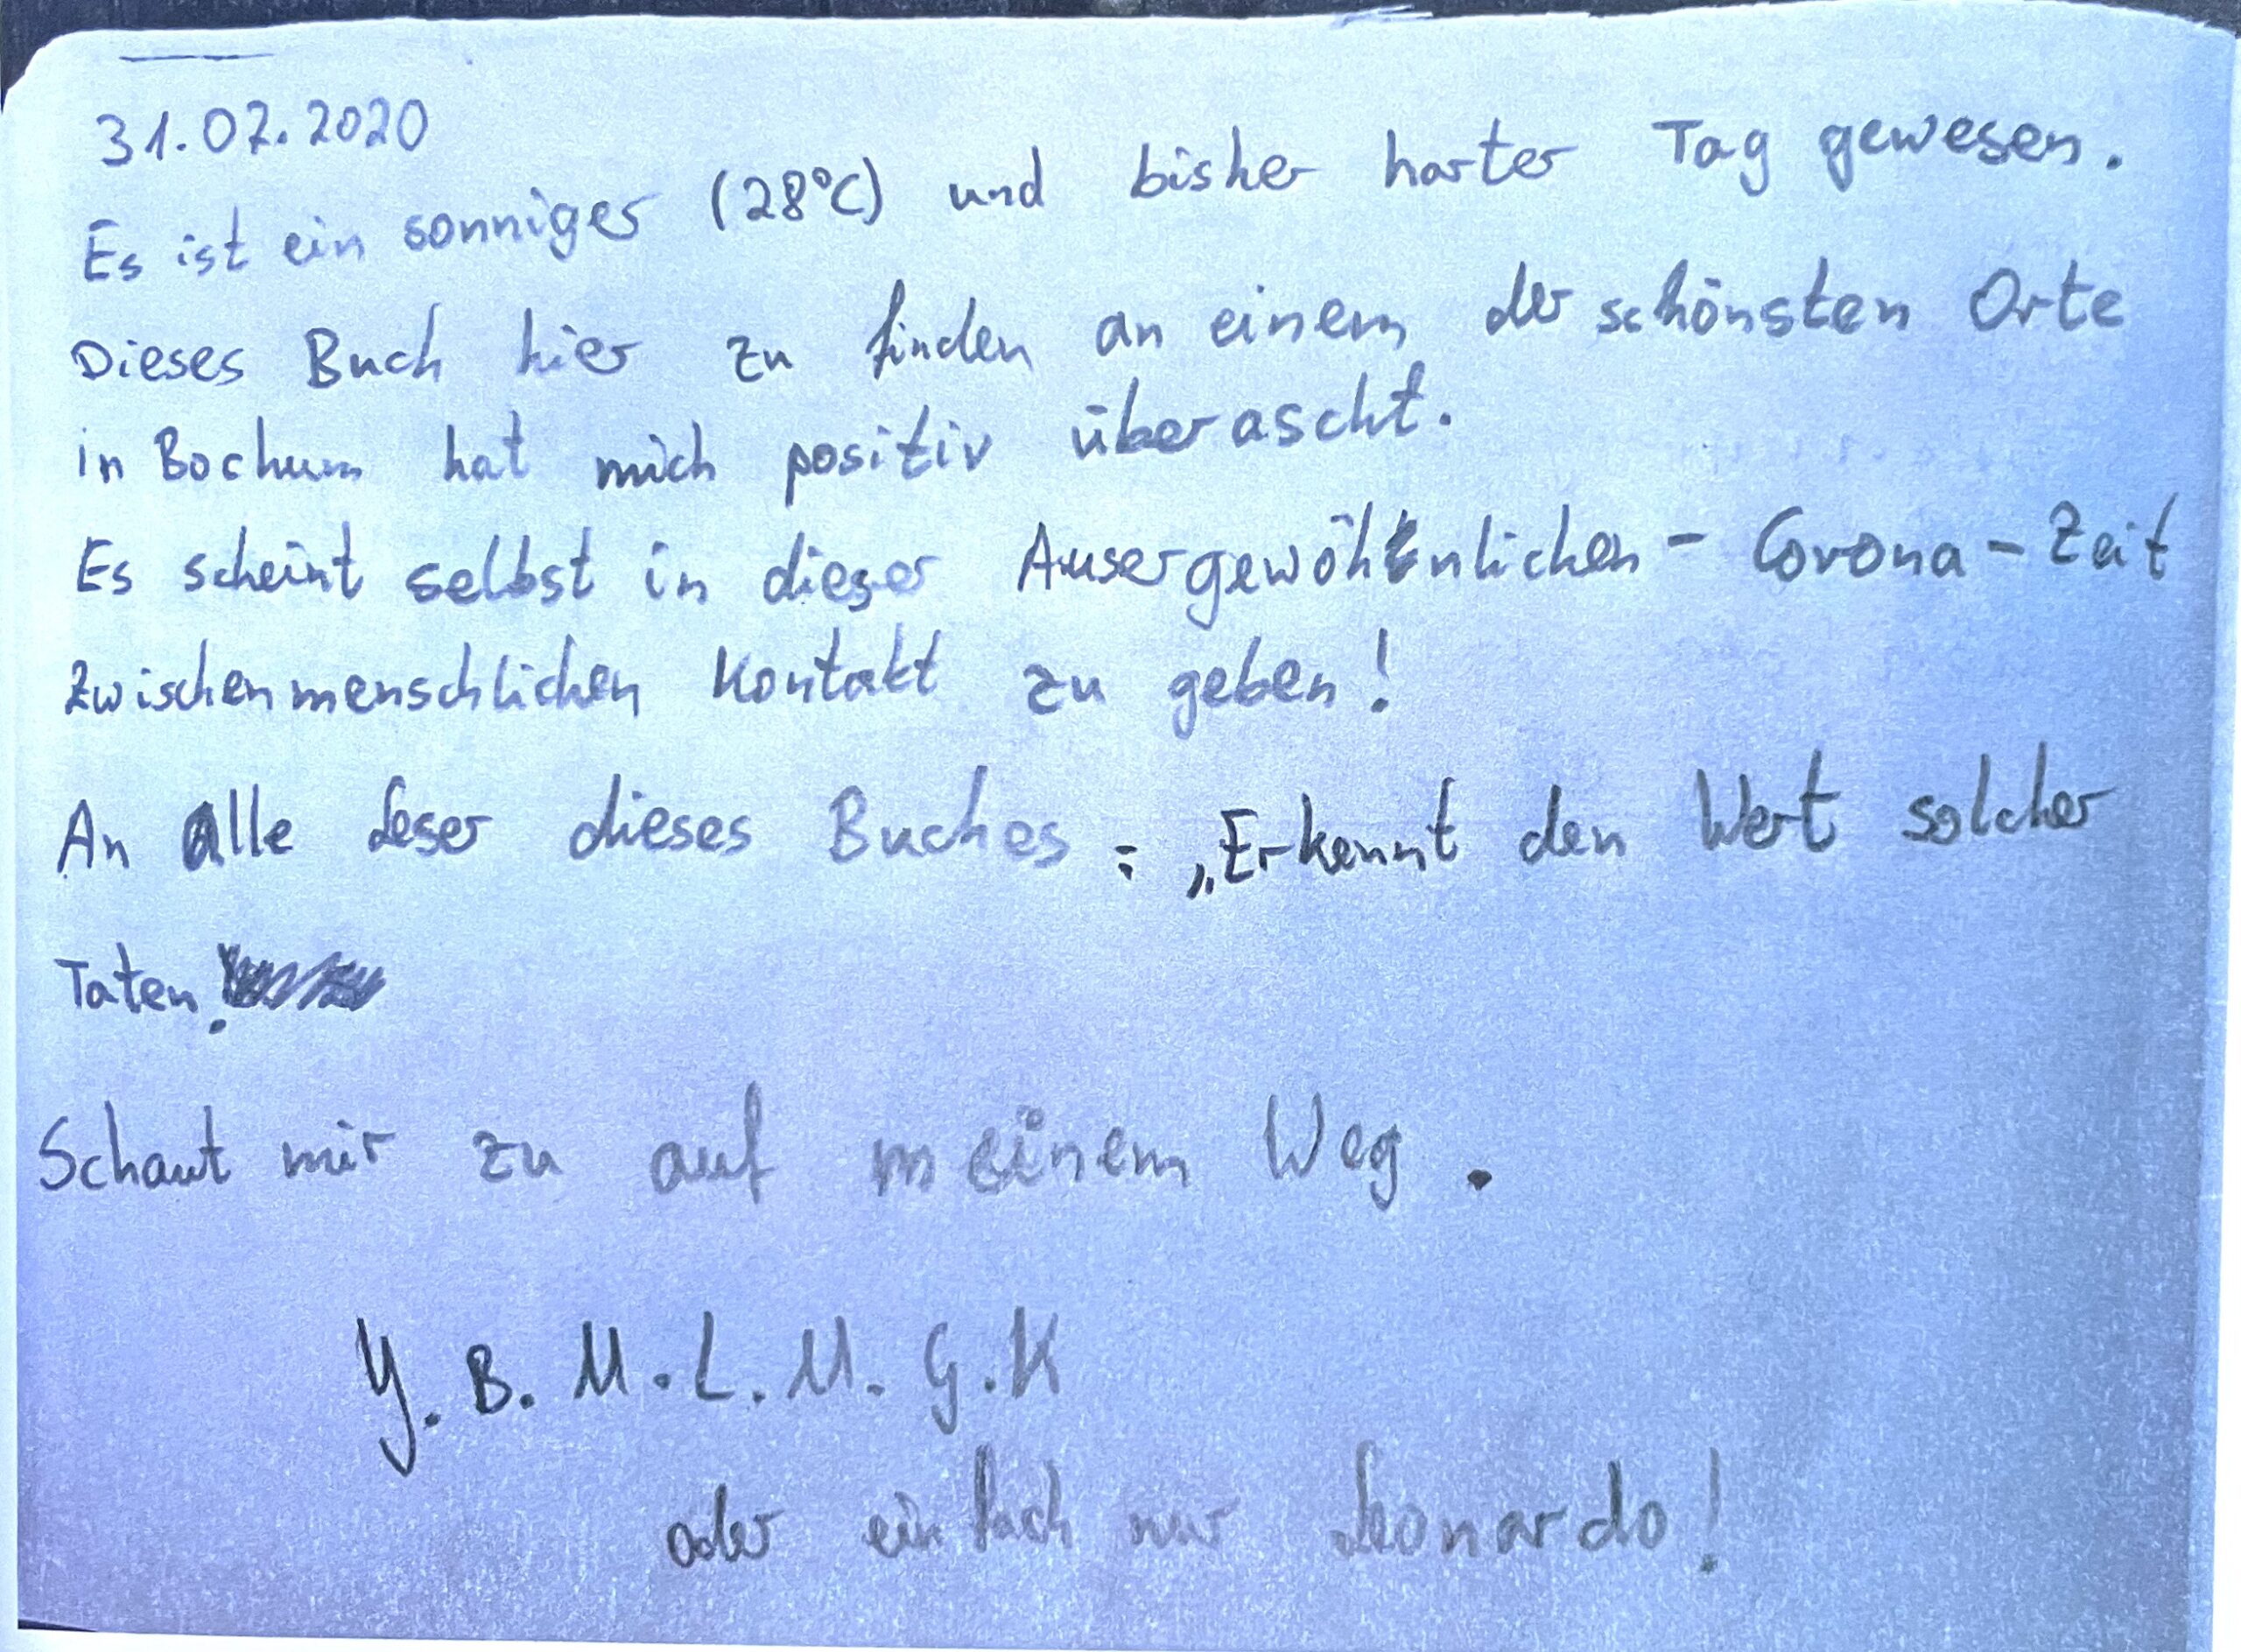 31.07.2020
Es ist ein sonniger (28°C) und bisher harter Tag gewesen.
Dieses Buch hier zu finden an einem der schönsten Orte
in Bochum hat mich positiv überascht.
Es scheint selbst in dieser Ausergewöhnlichen - Corona - Zeit
Zwischenmenschlichen Kontakt zu geben!
An alle Leser dieses Buches: „Erkennt den Wert solcher
Taten!
Schaut mir zu auf meinem Weg.
Y. B. M. L. M. G. K
oder einfach nur Leonardo!